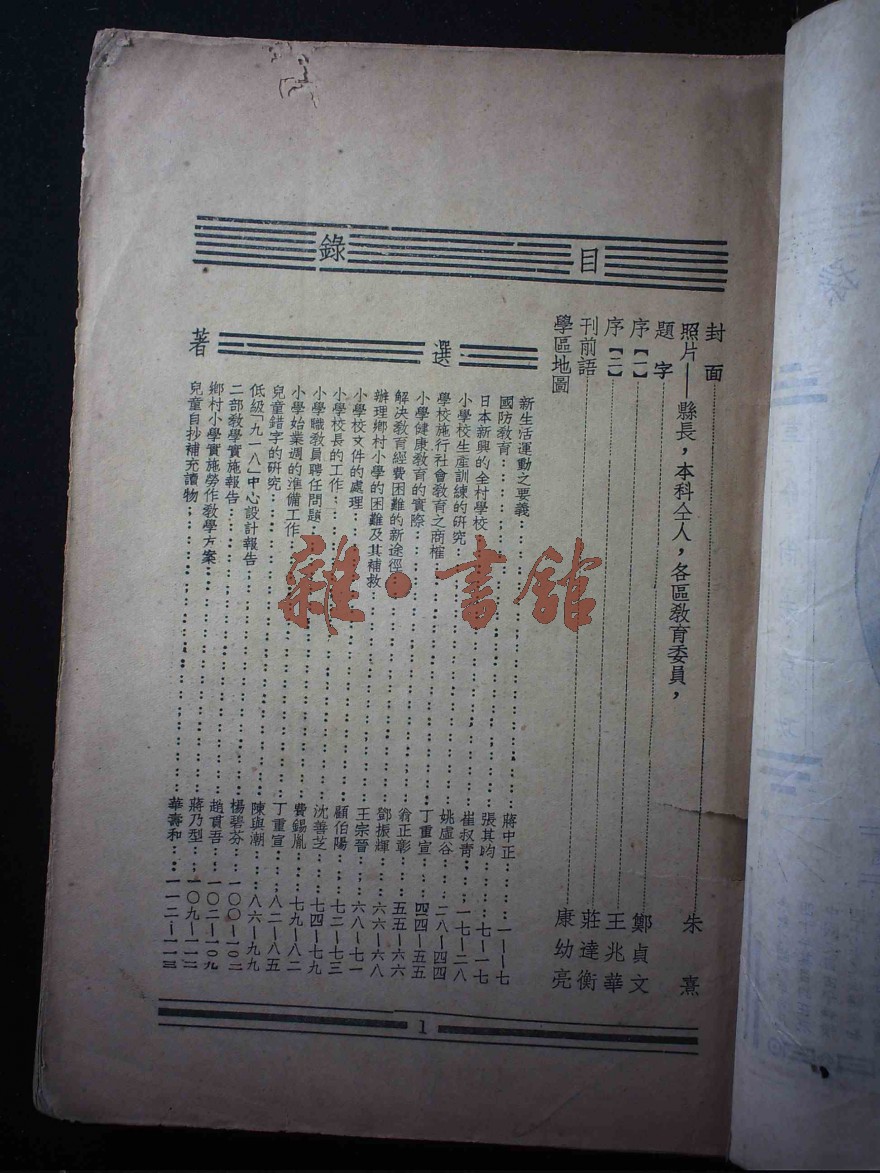 目錄
封面……朱熹
照片——縣長，本科仝人，各區教育委員，
題字……鄭貞文
序【一】……王兆華
序【二】……莊達衡
刊前語……康幼亮
學區地圖
選著
新生活運動之要義……蔣中正……一—七
國防教育……張其昀……七—一七
日本新興的全村學校……崔叔青……一七—二八
小學校生產訓練的研究……姚虛谷……二八—四四
學校施行社會教育之商榷……丁重宣……四四—五五
小學健康教育的實際……翁正彰……五五—六六
解決教育經費困難的新途徑……鄧振輝……六六—六八
辦理鄉村小學的困難及其補救……王宗晉……六八—七一
小學校文件的處理……顧伯陽……七二—七三
小學校長的工作……沈善芝……七四—七九
小學職教員聘任問題……費錫胤……七九—八二
小學始業週的準備工作……丁重宣……八二—八五
兒童錯字的研究……陳與潮……八六—九九
低級「九一八」中心設計報告……楊碧芬……一〇〇—一〇二
二部教學實施報告……趙貫吾……一〇二—一〇九
鄉村小學實施勞作教學方案……蔣乃型……一〇九—一一二
兒童自抄補充讀物……華壽和……一一二—一一三
1
雜·書館